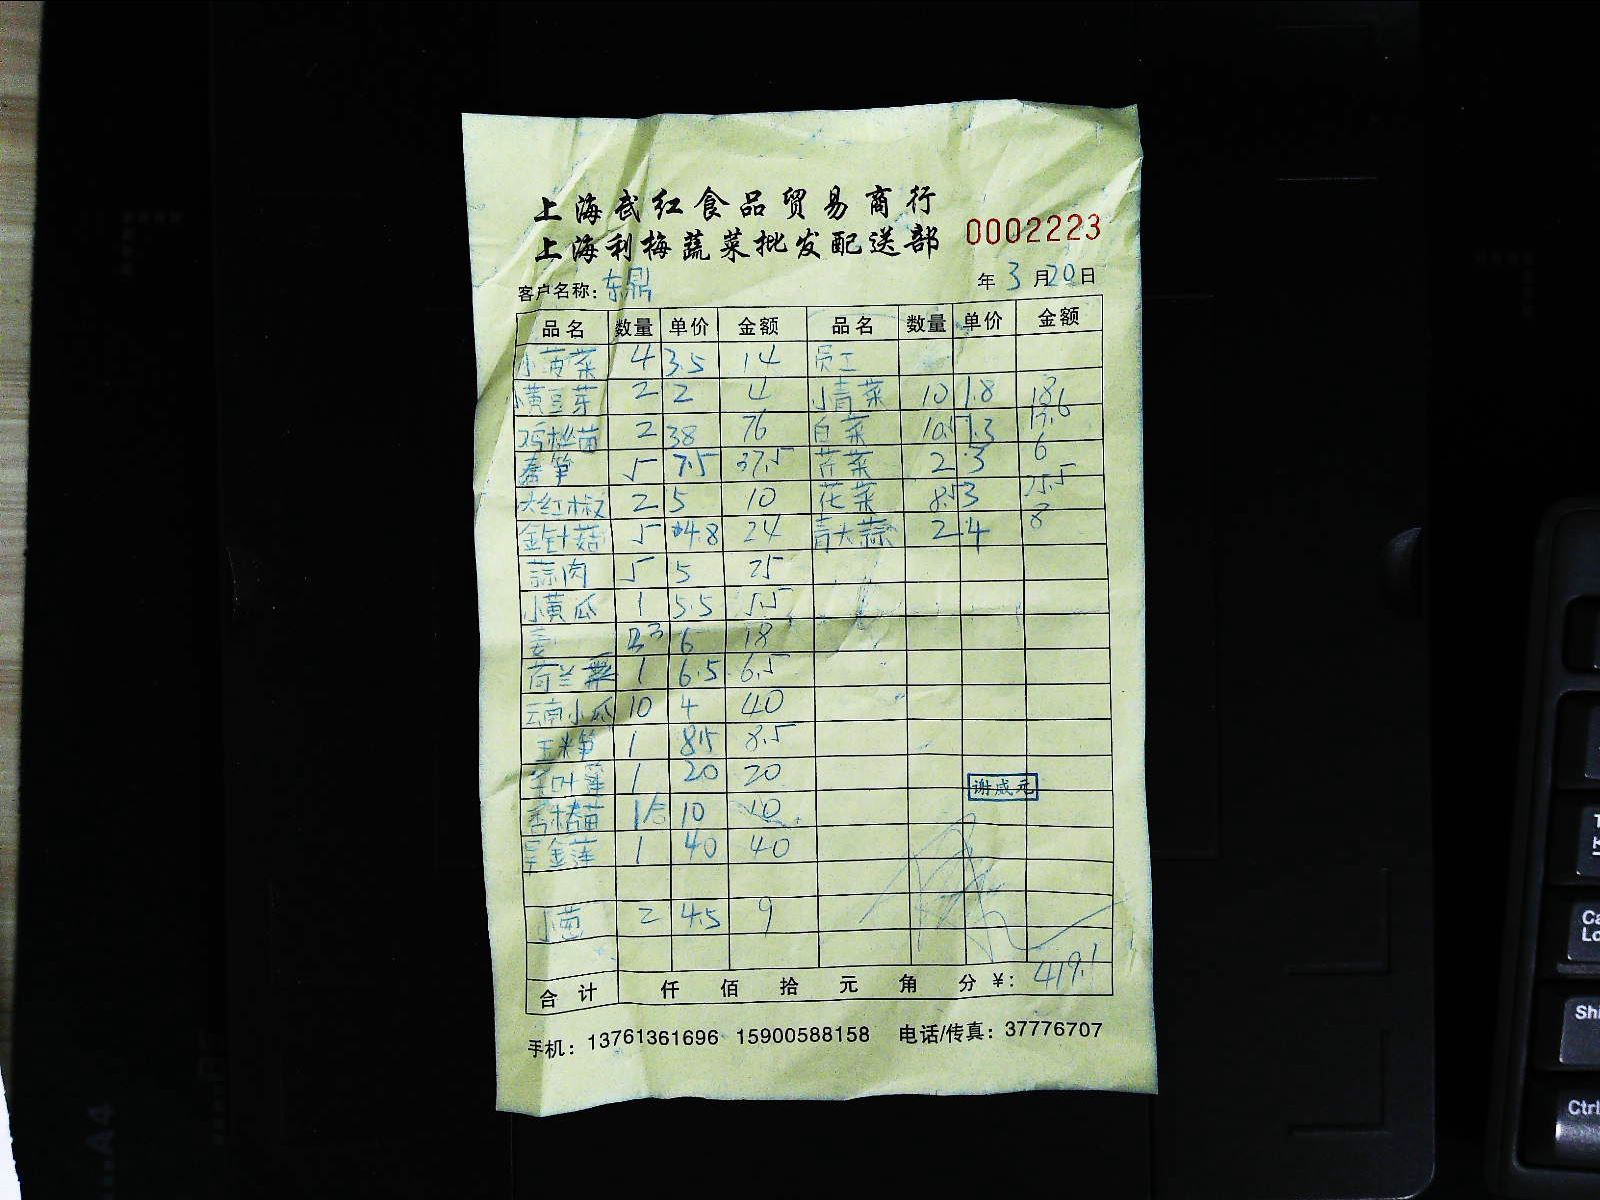 上海武红食品贸易商行
上海利梅蔬菜批发配送部
0002223
客户名称：东鼎
年 3 月 20 日
品名 数量 单价 金额 品名 数量 单价 金额
小菠菜 4 3.5 14 员工
小黄豆芽 2 2 4 小青菜 10 1.8 18
鸡枞菌 2 38 76 白菜 10.5 1.3
春笋 5 7.5 37.5 芹菜 2 3 6
大红椒 2 5 10 花菜 8.5 3 25.5
金针菇 5 4.8 24 青大蒜 2 4 8
蒜肉 5 5 25
小黄瓜 1 5.5 5.5
姜 3 6 18
荷兰 1 6.5 6.5
云南小瓜 10 4 40
玉米笋 1 8.5 8.5
叶 1 20 20
1 10 10
金莲 1 40 40
小葱 2 4.5 9
谢成元
合计 仟 佰 拾 元 角 分 ￥：419.1
手机：13761361696 15900588158 电话/传真：37776707
A4
Ca
Lo
Shi
Ctrl